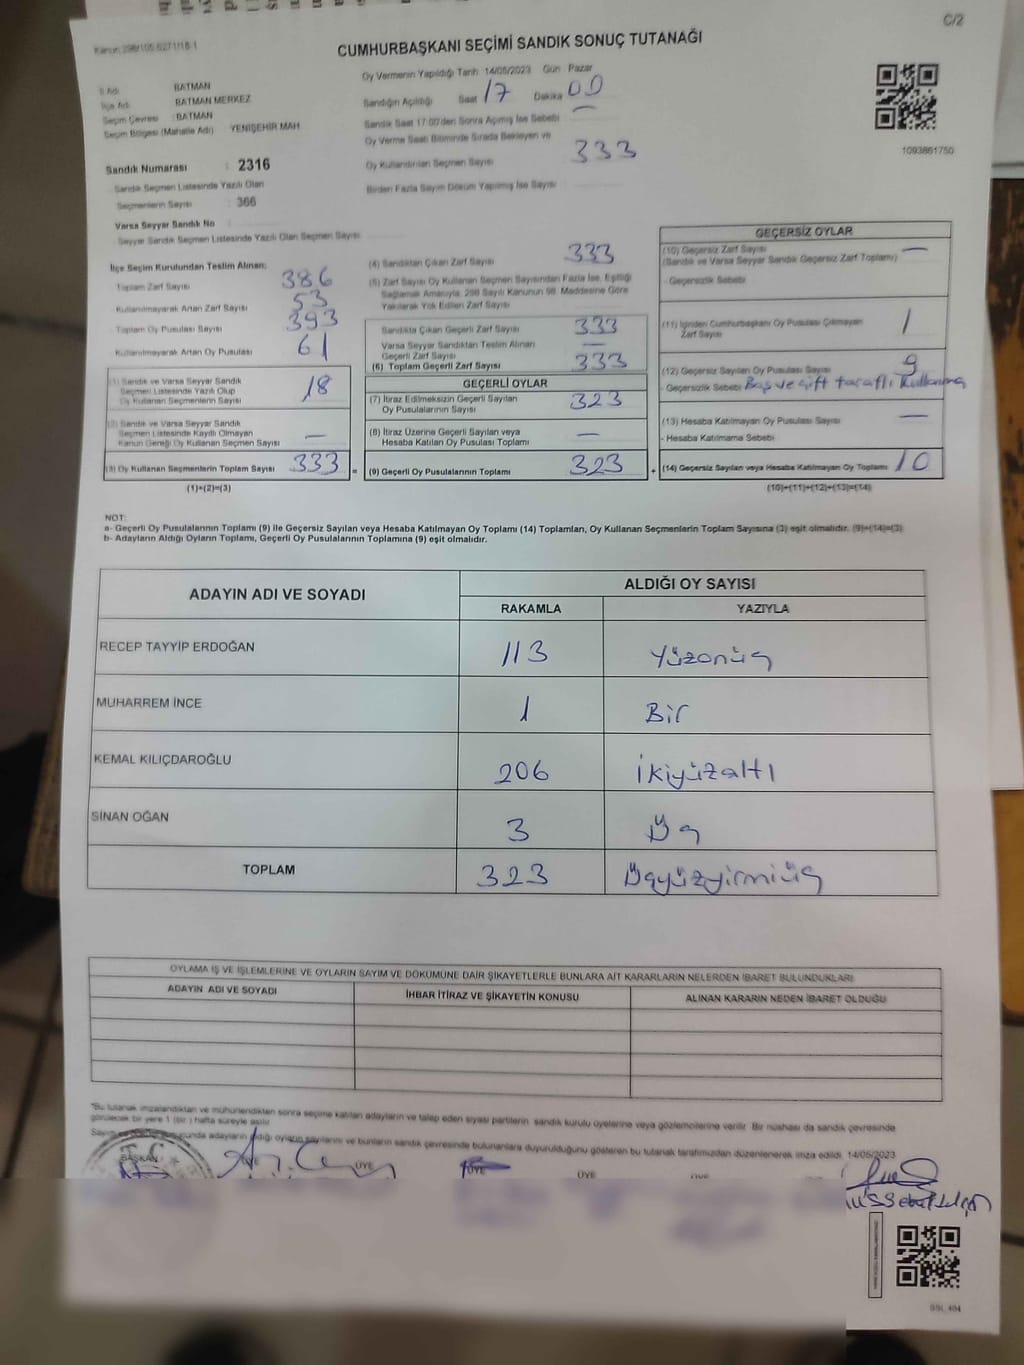 C/2
Kanun: 298/105-6271/18-1
CUMHURBAŞKANI SEÇİMİ SANDIK SONUÇ TUTANAĞI
İl Adı : BATMAN
İlçe Adı : BATMAN MERKEZ
Seçim Çevresi : BATMAN
Seçim Bölgesi (Mahalle Adı) YENİŞEHİR MAH
Sandık Numarası : 2316
Sandık Seçmen Listesinde Yazılı Olan
Seçmenlerin Sayısı : 366
Varsa Seyyar Sandık No
Seyyar Sandık Seçmen Listesinde Yazılı Olan Seçmen Sayısı
Oy Vermenin Yapıldığı Tarih 14/05/2023 Gün Pazar
Sandığın Açıldığı Saat 17 Dakika 00
Sandık Saat 17:00'den Sonra Açılmış İse Sebebi —
Oy Verme Saati Bitiminde Sırada Bekleyen ve
Oy Kullandırılan Seçmen Sayısı 333
Birden Fazla Sayım Döküm Yapılmış İse Sayısı
1093861750
İlçe Seçim Kurulundan Teslim Alınan;
Toplam Zarf Sayısı 386
Kullanılmayarak Artan Zarf Sayısı 53
Toplam Oy Pusulası Sayısı 393
Kullanılmayarak Artan Oy Pusulası 61
(1) Sandık ve Varsa Seyyar Sandık
Seçmen Listesinde Yazılı Olup
Oy Kullanan Seçmenlerin Sayısı 18
(2) Sandık ve Varsa Seyyar Sandık
Seçmen Listesinde Kayıtlı Olmayan
Kanun Gereği Oy Kullanan Seçmen Sayısı —
(3) Oy Kullanan Seçmenlerin Toplam Sayısı 333 =
(1)+(2)=(3)
(4) Sandıktan Çıkan Zarf Sayısı 333
(5) Zarf Sayısı Oy Kullanan Seçmen Sayısından Fazla İse, Eşitliği
Sağlamak Amacıyla, 298 Sayılı Kanunun 98. Maddesine Göre
Yakılarak Yok Edilen Zarf Sayısı
Sandıkta Çıkan Geçerli Zarf Sayısı 333
Varsa Seyyar Sandıktan Teslim Alınan
Geçerli Zarf Sayısı —
(6) Toplam Geçerli Zarf Sayısı 333
GEÇERLİ OYLAR
(7) İtiraz Edilmeksizin Geçerli Sayılan
Oy Pusulalarının Sayısı 323
(8) İtiraz Üzerine Geçerli Sayılan veya
Hesaba Katılan Oy Pusulası Toplamı —
(9) Geçerli Oy Pusulalarının Toplamı 323 +
GEÇERSİZ OYLAR
(10) Geçersiz Zarf Sayısı —
(Sandık ve Varsa Seyyar Sandık Geçersiz Zarf Toplamı)
- Geçersizlik Sebebi
(11) İçinden Cumhurbaşkanı Oy Pusulası Çıkmayan
Zarf Sayısı 1
(12) Geçersiz Sayılan Oy Pusulası Sayısı 9
- Geçersizlik Sebebi Boş ve çift taraflı kullanma
(13) Hesaba Katılmayan Oy Pusulası Sayısı —
- Hesaba Katılmama Sebebi
(14) Geçersiz Sayılan veya Hesaba Katılmayan Oy Toplamı 10
(10)+(11)+(12)+(13)=(14)
NOT:
a- Geçerli Oy Pusulalarının Toplamı (9) ile Geçersiz Sayılan veya Hesaba Katılmayan Oy Toplamı (14) Toplamları, Oy Kullanan Seçmenlerin Toplam Sayısına (3) eşit olmalıdır. (9)+(14)=(3)
b- Adayların Aldığı Oyların Toplamı, Geçerli Oy Pusulalarının Toplamına (9) eşit olmalıdır.
ADAYIN ADI VE SOYADI ALDIĞI OY SAYISI
RAKAMLA YAZIYLA
RECEP TAYYİP ERDOĞAN 113 Yüzonüç
MUHARREM İNCE 1 Bir
KEMAL KILIÇDAROĞLU 206 İkiyüzaltı
SİNAN OĞAN 3 Üç
TOPLAM 323 Üçyüzyirmiüç
OYLAMA İŞ VE İŞLEMLERİNE VE OYLARIN SAYIM VE DÖKÜMÜNE DAİR ŞİKAYETLERLE BUNLARA AİT KARARLARIN NELERDEN İBARET BULUNDUKLARI
ADAYIN ADI VE SOYADI İHBAR İTİRAZ VE ŞİKAYETİN KONUSU ALINAN KARARIN NEDEN İBARET OLDUĞU
*Bu tutanak imzalandıktan ve mühürlendikten sonra seçime katılan adayların ve talep eden siyasi partilerin sandık kurulu üyelerine veya gözlemcilerine verilir. Bir nüshası da sandık çevresinde
görülecek bir yere 1 (bir) hafta süreyle asılır.
adayların aldığı oyların sayılarını ve bunların sandık çevresinde bulunanlara duyurulduğunu gösteren bu tutanak tarafımızdan düzenlenerek imza edildi. 14/05/2023
T.C.
BAŞKAN ÜYE ÜYE ÜYE ÜYE